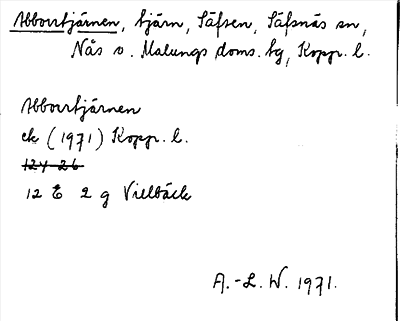 Abborrtjärnen, tjärn, Säfsen, Säfsnäs sn,
Nås o. Malungs doms. tg, Kopp. l.
Abborrtjärnen
ek (1971) Kopp. l.
12 E 2 g Vielbäck
A.-L. W. 1971.